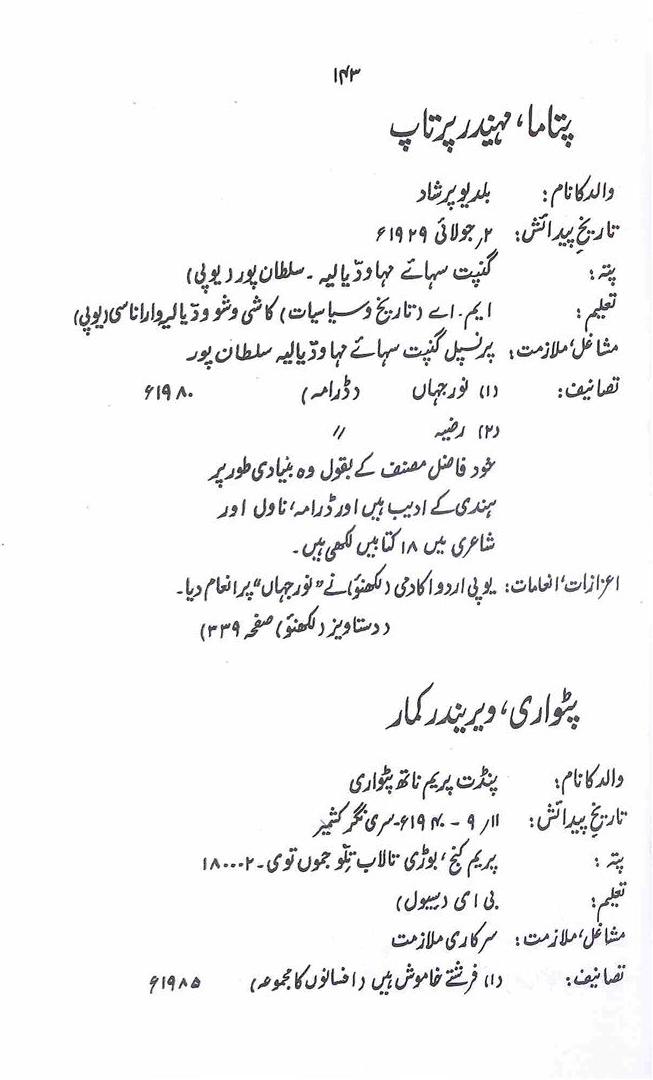 ۱۴۳
پتاما، مہیندر پرتاپ
والد کا نام: بلدیو پرشاد
تاریخِ پیدائش: ۲؍ جولائی ۱۹۲۹ء
پتہ: گنپت سہائے مہاودّیالیہ ۔ سلطان پور (یوپی)
تعلیم: ایم۔اے (تاریخ و سیاسیات) کاشی وشو ودّیالیہ واراناسی (یوپی)
مشاغل، ملازمت: پرنسپل گنپت سہائے مہاودّیالیہ سلطان پور
تصانیف: (۱) نورجہاں (ڈرامہ) ۱۹۸۰ء
(۲) رضیہ //
خود فاضل مصنف کے بقول وہ بنیادی طور پر
ہندی کے ادیب ہیں اور ڈرامہ، ناول اور
شاعری میں ۱۸ کتابیں لکھی ہیں۔
اعزازات، انعامات: یوپی اردو اکادمی (لکھنؤ) نے "نورجہاں" پر انعام دیا۔
(دستاویز (لکھنؤ) صفحہ ۳۳۹)
پٹواری، ویریندر کمار
والد کا نام: پنڈت پریم ناتھ پٹواری
تاریخِ پیدائش: ۱۱؍ ۹ - ۱۹۴۰ء۔ سری نگر کشمیر
پتہ: پریم کنج، بوڑی تالاب تِلّو جموں توی۔ ۱۸۰۰۰۲
تعلیم: بی ای (سیول)
مشاغل، ملازمت: سرکاری ملازمت
تصانیف: (۱) فرشتے خاموش ہیں (افسانوں کا مجموعہ) ۱۹۸۵ء